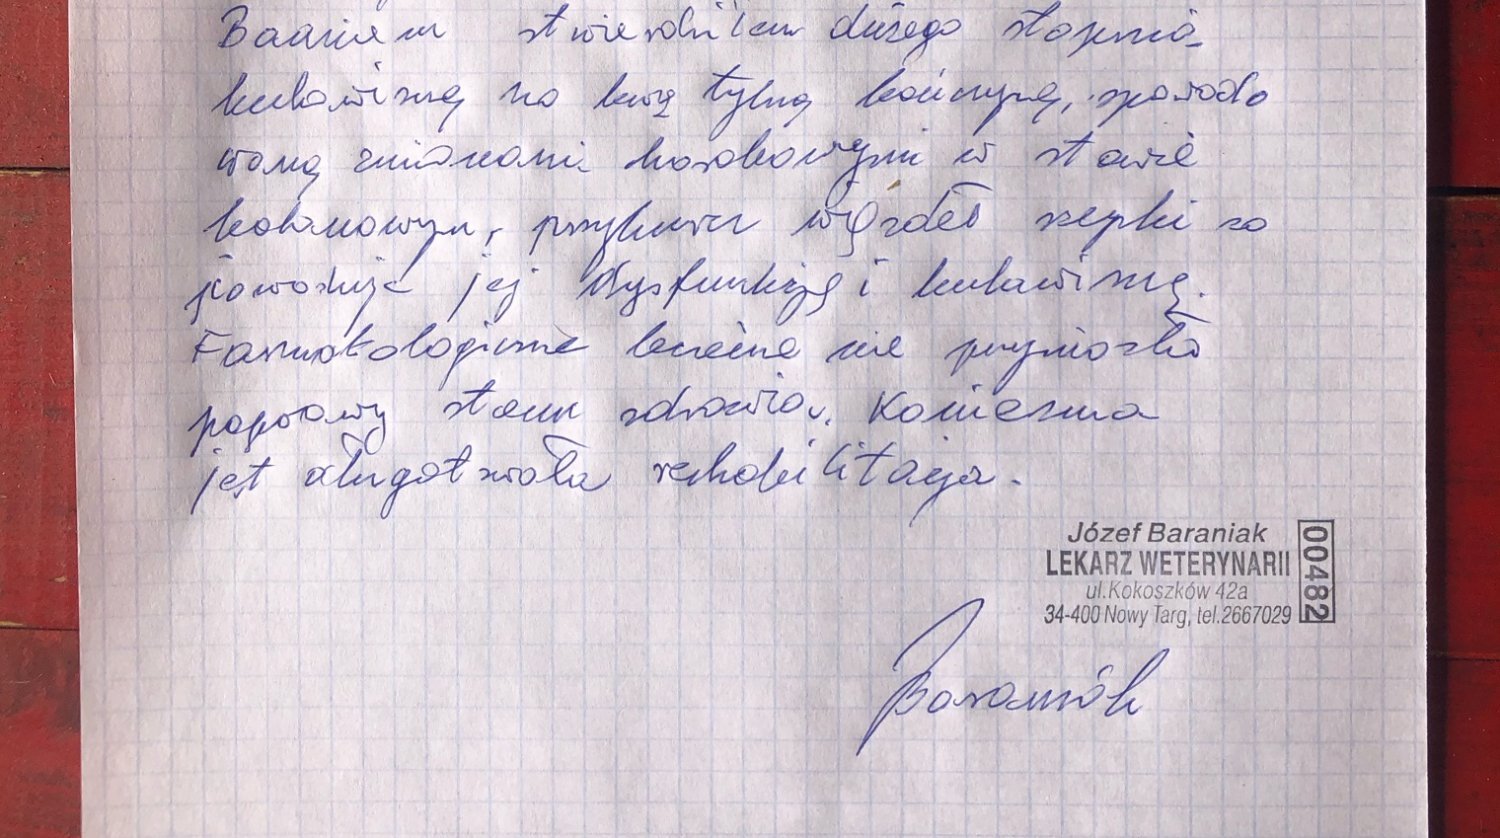 Badaniem stwierdziłem dużego stopnia
kulawiznę na lewą tylną kończynę, spowodo
waną zmianami chorobowymi w stawie
kolanowym, przykurcz więzadeł rzepki po
powodując jej dysfunkcję i kulawiznę.
Farmakologiczne leczenie nie przyniosło
poprawy stanu zdrowia. Konieczna
jest długotrwała rehabilitacja.
Józef Baraniak
LEKARZ WETERYNARII
ul.Kokoszków 42a
34-400 Nowy Targ, tel.2667029
00482
Baraniak